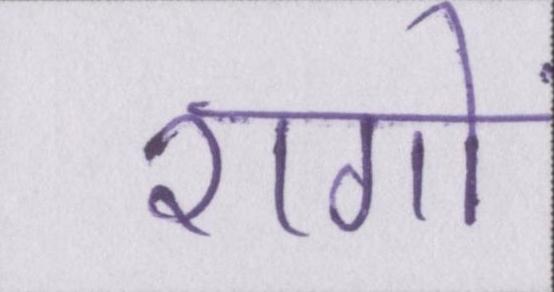 रागों